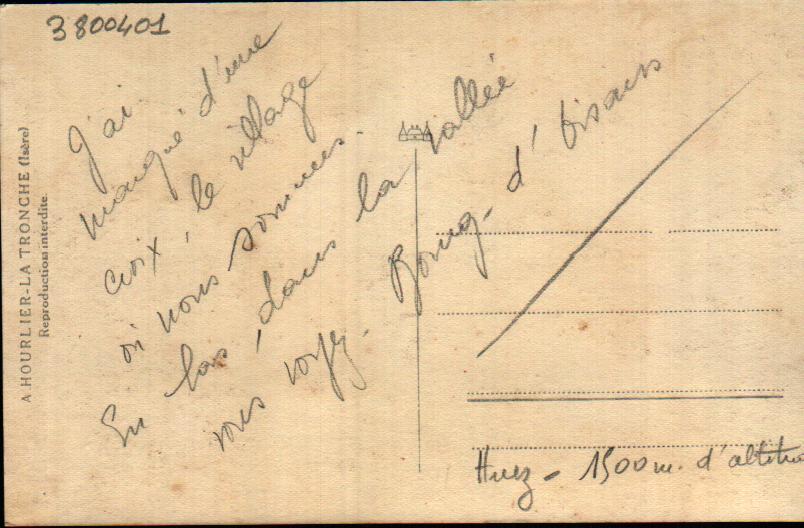 3800401
A HOURLIER-LA TRONCHE (Isère)
Reproduction interdite
J'ai
marqué d'une
croix, le village
où nous sommes.
En bas, dans la vallée
vous voyez. Bourg-d'Oisans
Huez - 1500 m. d'altitu